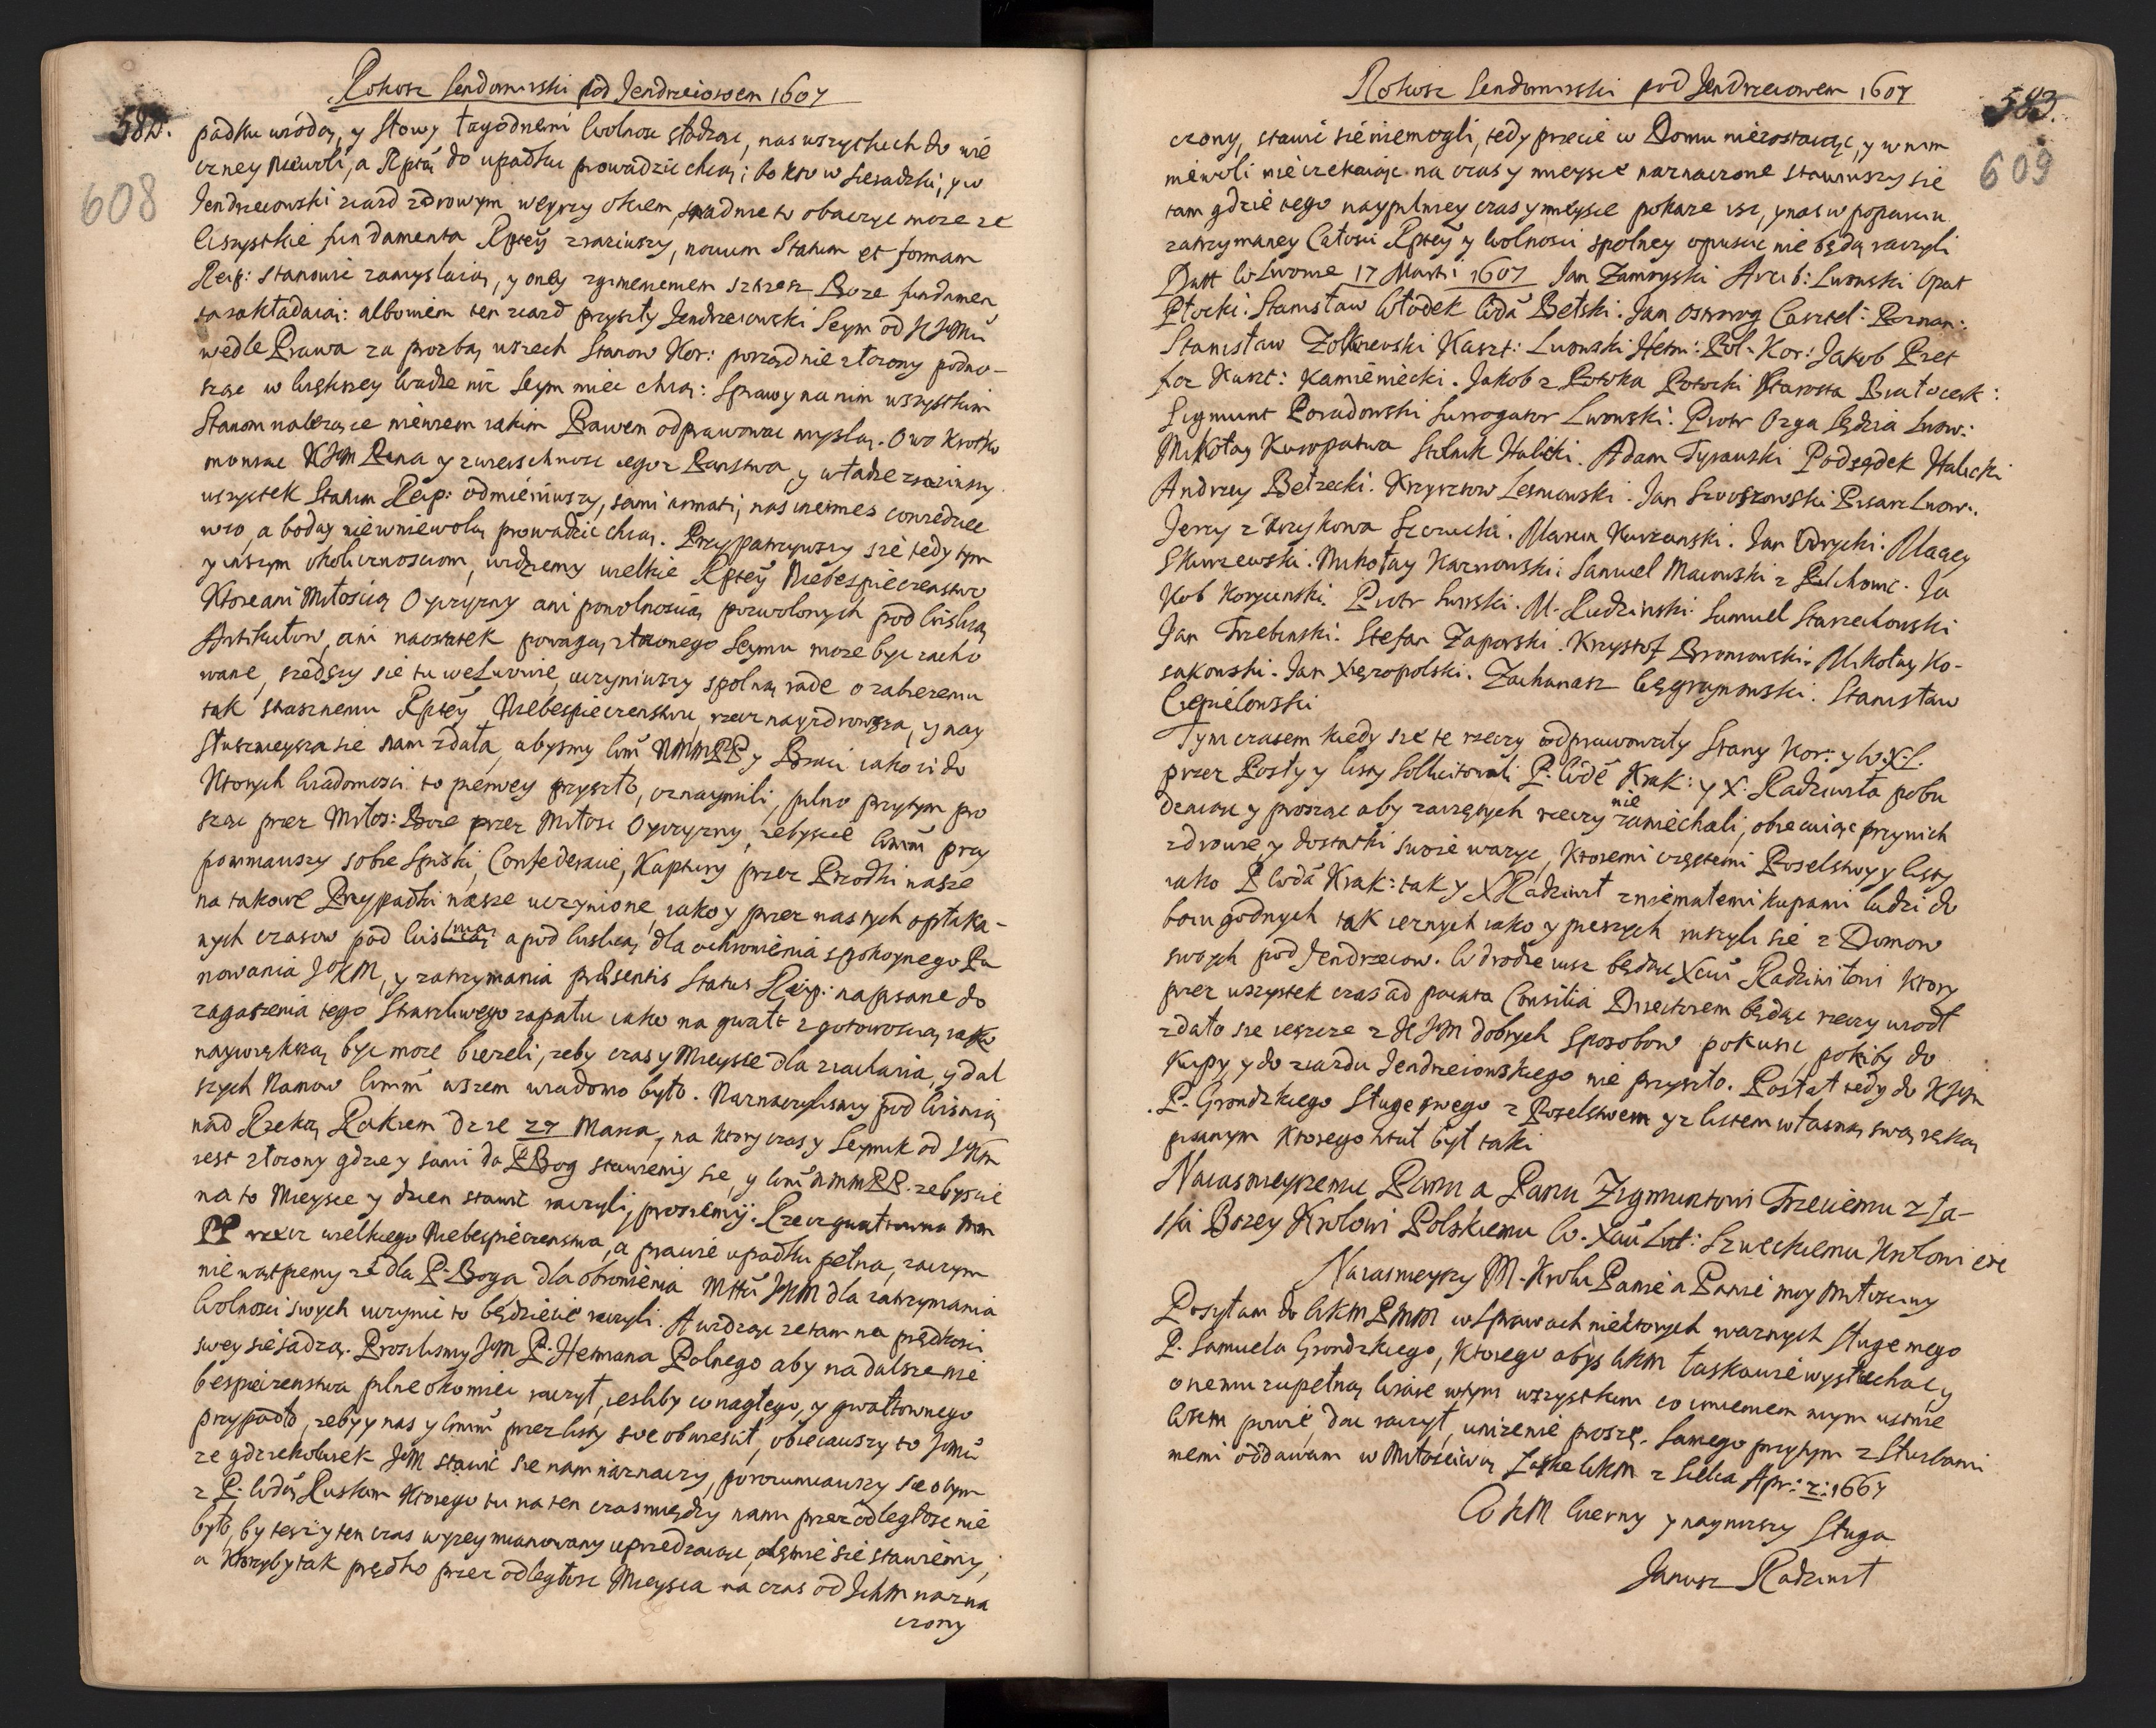 Rokosz Sendomirski pod Jendrzeiowem 1607
582.
608
padku wiodą, y słowy łagodnemi Wolnosc słodząc, nas wszystkich do wie
czney niewoli, a Rptą do upadku prowadzic chcą; bo kto w Sieradzki, y w
Jendrzeiowski ziazd zdrowym weyzry okiem, snadnie to obaczyc moze ze
Wszystkie fundamenta Rptey zraziwszy, novum Statum et formam
Reip: stanowic zamyslaią, y oney
zakładaią: albowiem ten ziazd przyszły Jendrzeiowski Seym od JKMci
wedle Prawa za prozbą wszech Stanow Kor: porządnie złozony podno-
sząc w większey wadze niz Seym miec chcą: Sprawy na nim wszystkim
Stanom nalezące niewiem iakim Prawem odprawowac myslą. Owo krotko
mowiąc KJM Pana y zwierzchnosc iego z Panstwa, y władze zraziwszy
wszystek Statum Reip: odmieniwszy, sami armati, nas inermes
a boday nie w niewolą prowadzic chcą. Przypatrzywszy się tedy tym
y inszym okolicznosciom, widziemy wielkie Rptey Niebespieczenstwo
Ktore ani Miłoscią Oyczyzny ani powolnoscią pozwolonych pod Wislicą
Artikułow, ani naostatek powagą złozonego Seymu moze byc zacho
wane, szedszy się tu we Lwowie, uczyniwszy spolną rade o zabiezeniu
tak strasznemu Rptey Niebespieczenstwu, rzecz nayzdrowsza, y nay
słusznieysza sie nam zdała, abysmy Wm NMMPP y Braci iako ci do
Ktorych wiadomosci to pierwey przyszło, oznaymili, pilno przytym pro
sząc przez Miłos: Boze przez Miłosc Oyczyzny, zebyscie Wmm przy
pomniawszy sobie Spiski, Confederacie, Kaptury przez Przodki nasze
na takowe Przypadki nasze uczynione, iako y przez nas tych opłaka-
nych czasow pod Wislicą a pod Wislicą dla uchronienia spokoynego Pa
nowania JKM, y zatrzymania praesentis Status Reip: napisane do
zagaszenia tego straszliwego zapału iako na gwałt z gotowoscią iako
naywiększą byc moze biezeli, zeby czas y Mieysce dla ziachania, y dal
szych Namow Wmm wszem wiadomo było. Naznaczylismy pod Wisnią
nad Rzeką Rakiem dzie 27 Marca, na ktory czas y Seymik od JKM
iest złozony gdzie y sami da PBog stawiemy sie, y Wm NMMPP. zebyscie
na to Mieysce y dzien stawic raczyli, prosiemy. Rzecz gwałtowna Mm
PP rzecz wielkiego Niebespieczenstwa, a prawie upadku pełna, zaczym
nie wątpiemy ze dla P. Boga dla obronienia Mttu JKM dla zatrzymania
Wolnosci swych uczynic to będziecie raczyli. A widząc ze tam na prędkosci
swey sie sadzą. Prosilismy JM P. Hetmana Polnego aby na dalsze nie
bespieczenstwa pilne oko miec raczył, iesliby co nagłego, y gwałtownego
przypadło, zeby y nas y Wmm przez listy swe obwiescił, obiecawszy to Jemu
ze gdziekolwiek JM stawic sie nam naznaczy, porozumiawszy sie o tym
z P. Wdą Ruskim ktorego tu na ten czas między nami przez odległosc nie
było, by tesz y ten czas wyzey mianowany uprzedzaiąc, chętnie sie stawiemy,
a ktorzyby tak prędko przez odległosc Mieysca na czas od Ichm nazna
czony
Rokosz Sendomirski pod Jendrzeiowem 1607
583.
609
czony, stawic sie niemogli, tedy przecie w Domu niezostaiąc, y w nim
niewoli nie czekaiąc na czas y mieysce naznaczone stawiwszy sie
tam gdzie tego naypilniey czas y mieysce pokaze isc, y nas w poparciu
zatrzymaney Całosci Rptey y Wolnosci spolney opuscic nie będą raczyli
Datt We Lwowie 17 Marti 1607 Jan Zamoyski Arcib: Lwowski Opat
Płocki. Stanisław Włodek Wdā Bełski. Jan Ostrorog Casztel: Poznan:
Stanisław Zołkiewski Kaszt: Lwowski Hetm: Pol: Kor: Jakob Pret
fic Kaszt: Kamieniecki. Jakob z Potoka Potocki Starosta Białocerk:
Sigmunt Poradowski Surrogator Lwowski. Piotr Ozga Sędzia Lwow:
Mikołay Kuropatwa Stolnik Halicki. Adam Tyrawski Podsędek Halicki
Andrzey Bełzecki. Krzysztow Lesniowski. Jan Swoszowski Pisarz Lwow:
Jerzy z Wezykowa Sieniecki. Marcin Kurzanski. Jan Udrycki. Maciey
Skurzewski. Mikołay Karnowski. Samuel Maiowski z Pelchowic. Ja
kob Korycinski. Piotr Surski. M. Rudzinski. Samuel Starzechowski
Jan Trzebinski. Stefan Zaporski. Krzysztof Broniowski. Mikołay Ko-
sakowski. Jan Xięzopolski. Zachariasz Cegrzynowski. Stanisław
Ciepielowski
Tym czasem kiedy sie te rzeczy odprawowały Stany Kor: y W.X.L.
przez Posły y listy sollicitowali P. Wdē Krak: y X. Radziwiła pobu
dzaiąc y prosząc aby zaczętych rzeczy nie zaniechali, obiecuiąc przy nich
zdrowie y dostatki swoie wazyc, ktoremi częstemi Poselstwy y listy
iako P Wdā Krak: tak y X Radziwił z niemałemi kupami ludzi do
boiu godnych tak iezdnych iako y pieszych ruszyli się z Domow
swoych pod Jendrzeiow. W drodze iusz będąc Xciu Radziwiłowi ktory
przez wszystek czas ad pacata Consilia Directorem będąc rzeczy wiodł
zdało sie ieszcze z KJM dobrych Sposobow pokusic, pokiby do
kupy y do ziazdu Jendrzeiowskiego nie przyszło. Posłał tedy do KJM
P. Grondzkiego Sługe swego z Poselstwem y z listem własną swą ręką
pisanym ktorego tituł był taki
Naiasnieyszemu Panu a Panu Zigmuntowi Trzeciemu z ła-
ski Bozey Krolowi Polskiemu W. Xciu Lit: Szweckiemu Krolowi etc
Naiasnieyszy M. Krolu Panie a Panie moy Miłosciwy
Posyłam do WKM PMM w Sprawach niektorych waznych Sługe mego
P. Samuela Grondzkiego, ktorego abys WKM łaskawie wysłuchac y
onemu zupełną Wiare w tym wszystkim co imieniem mym ustnie
WKM powie, dac raczył, unizenie proszę. Samego przytym z Słuzbami
memi oddawam w Miłosciwą Łaske WKM z Sielca Apr: 2: 1667
WKM Wierny y naynizszy Sługa
Janusz Radziwił